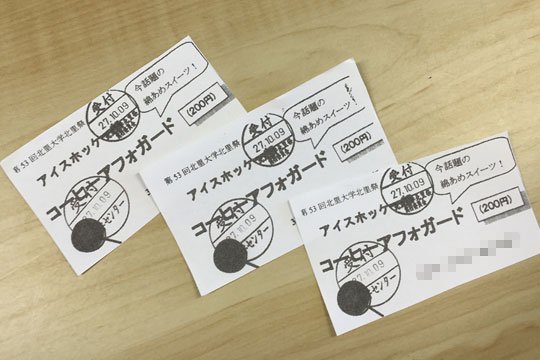 受付
27.10.09
今話題の
綿あめスイーツ!
第53回北里大学北里祭
(200円)
アイスホッケー
コーヒーアフォガード
受付
27.10.09
センター
受付
27.10.09
今話題の
綿あめスイーツ!
第53回北里大学北里祭
(200円)
アイスホッケー
コーヒーアフォガード
受付
27.10.09
センター
受付
27.10.09
今話題の
綿あめスイーツ!
第53回北里大学北里祭
(200円)
アイスホッケー
コーヒーアフォガード
受付
27.10.09
センター